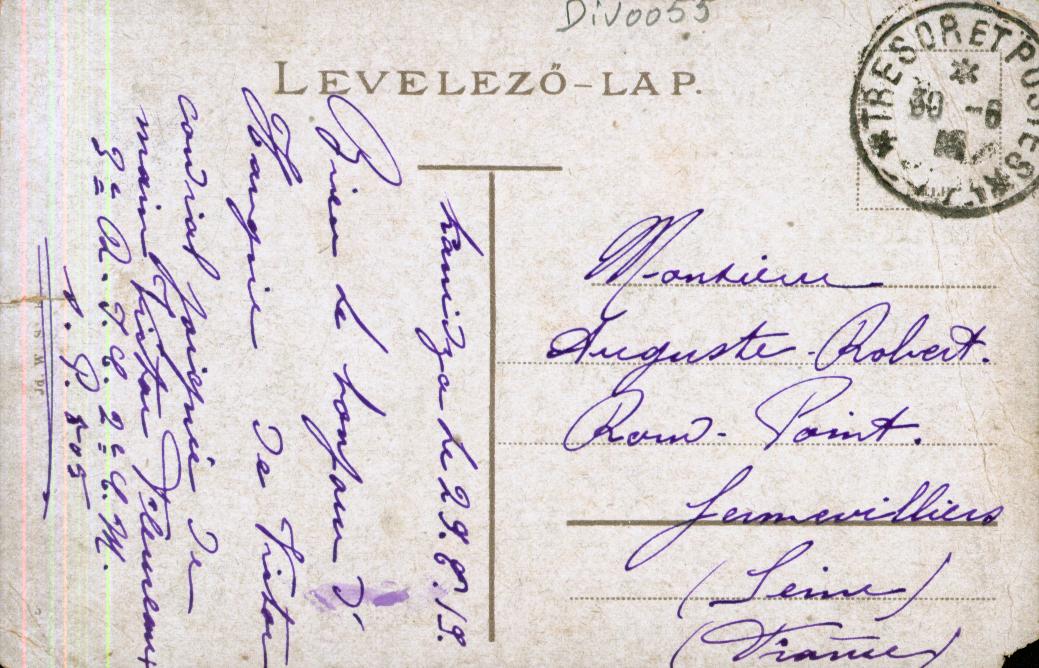 Div0055
LEVELEZŐ-LAP.
TRESOR ET POSTES
30 -6
le 29.6.19.
Bien le bonjour d'
Hongrie de Victor
cordial poignée de
main Victor
3e R. I. C. 2e C. M.
S. P. 505
Jd. W. S.
Monsieur
Auguste Robert.
Rond-Point.
Gennevilliers
(Seine)
(France)